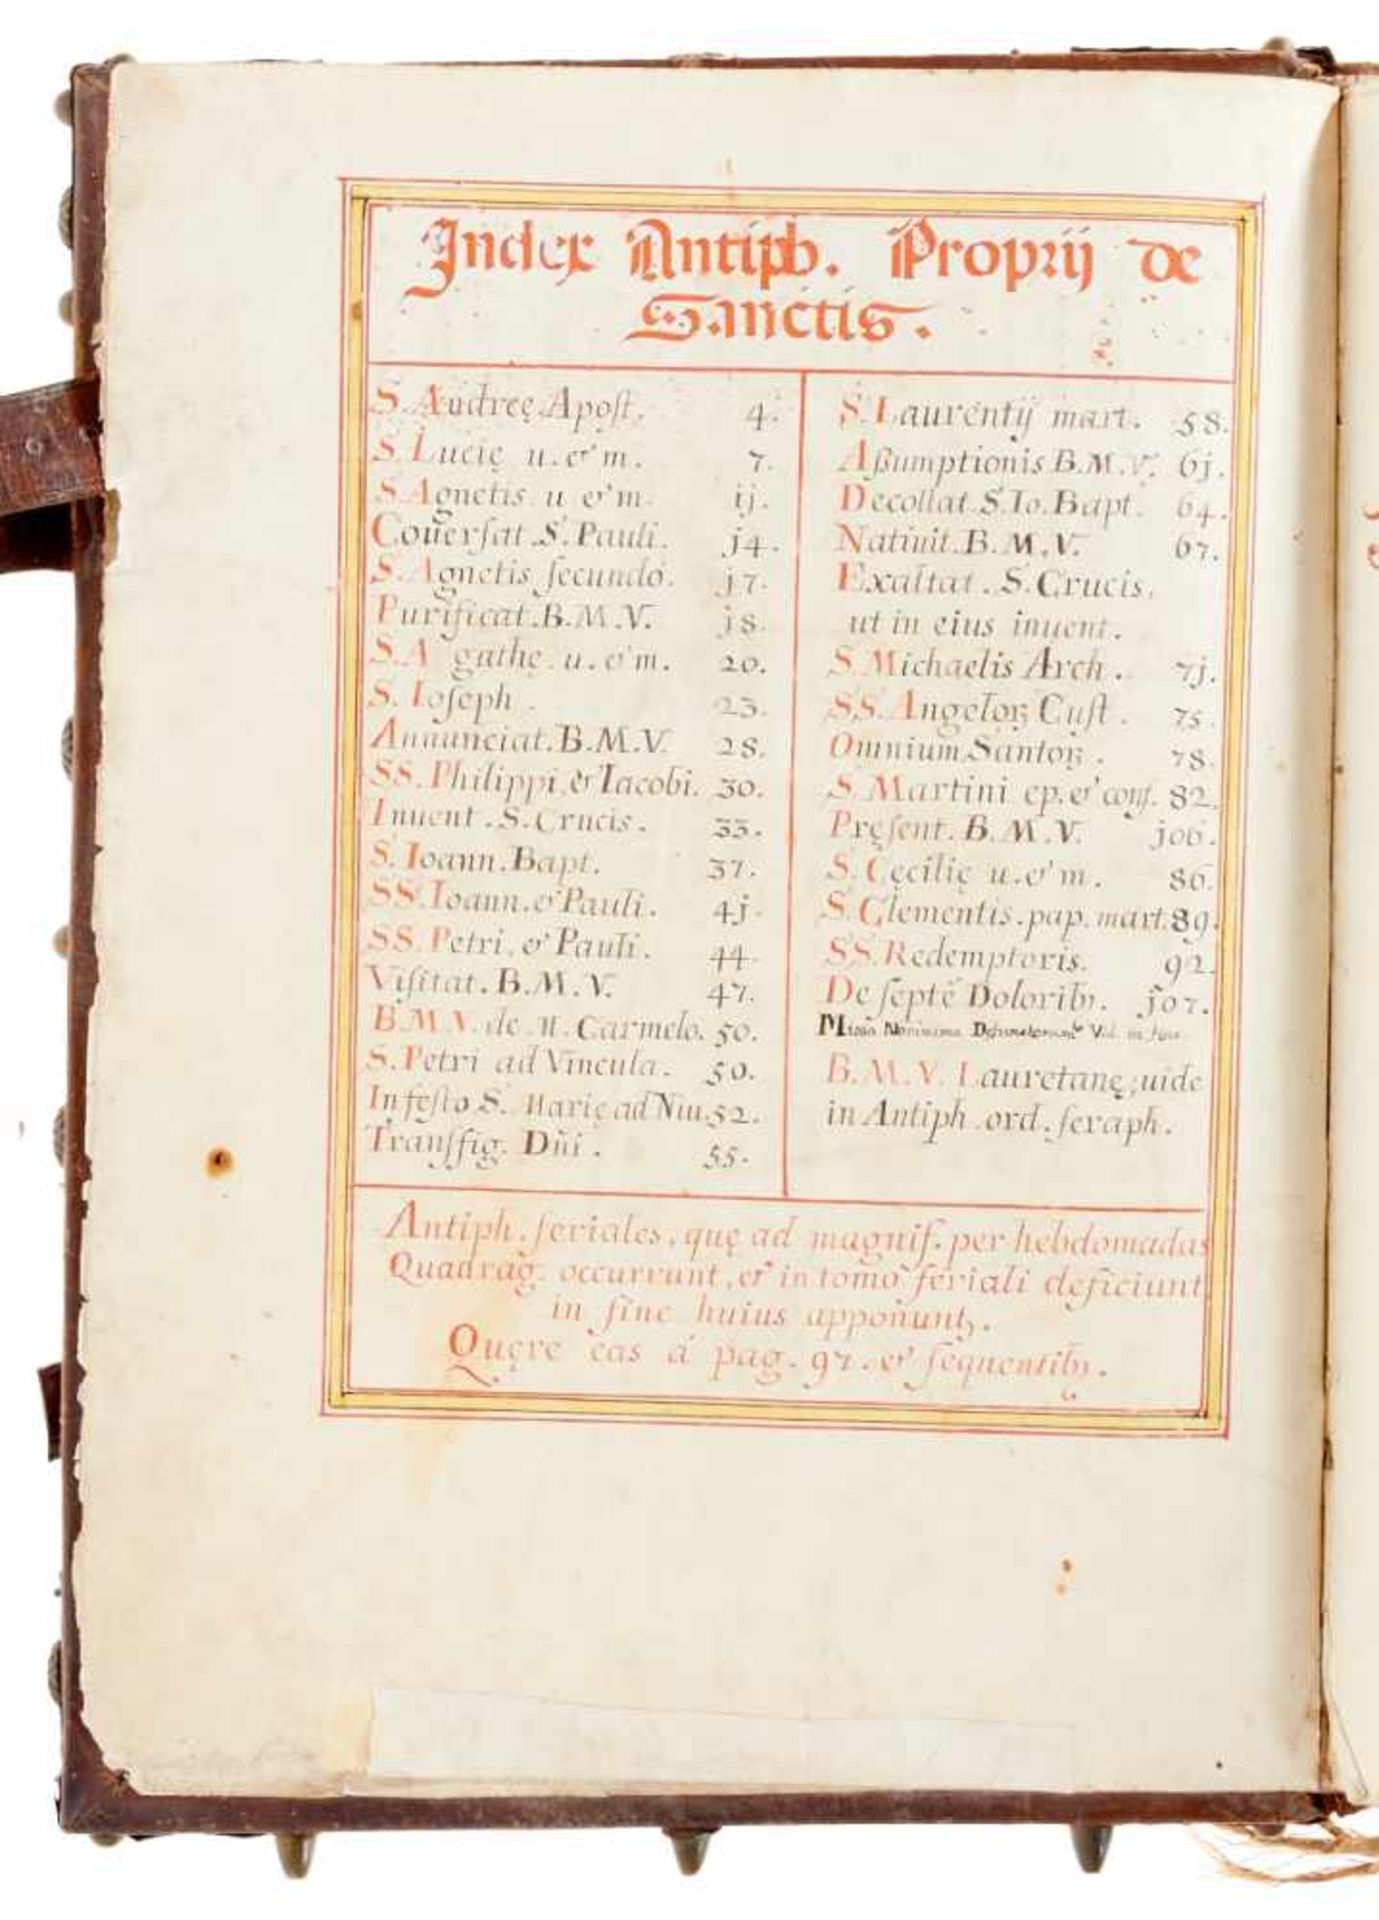 Index Antiph. Proprij de
Sanctis.
S. Andreę Apost. 4.
S. Lucię u. et m. 7.
S. Agnetis. u et m. ij.
Cõuersat. S. Pauli. j4.
S. Agnetis secundó. j7.
Purificat. B. M. V. j8.
S. Agathę. u. et m. 20.
S. Ioseph. 23.
Annunciat. B. M. V. 28.
SS. Philippi, et Iacobi. 30.
Inuent. S. Crucis. 33.
S. Ioann. Bapt. 37.
SS. Ioann. et Pauli. 4j.
SS. Petri, et Pauli. 44.
Visitat. B. M. V. 47.
B M V. de M. Carmelo. 50.
S. Petri ad Vincula. 50.
In festo S. Marię ad Niu. 52.
Transfig. Dñi. 55.
S. Laurentij mart. 58.
Assumptionis B. M. V. 6j.
Decollat. S. Io. Bapt. 64.
Natiuit. B. M. V. 67.
Exaltat. S. Crucis,
ut in eius inuent.
S. Michaelis Arch. 7j.
SS. Angeloꝝ Cust. 75.
Omnium Santoꝝ. 78.
S. Martini ep. et conf. 82.
Pręsent. B. M. V. j06.
S. Cęcilię u. et m. 86.
S. Clementis. pap. mart. 89.
SS. Redemptoris. 92.
De septẽ Doloribꝫ. j07.
in fine
B. M. V. Lauretanę, uide
in Antiph. ord. seraph.
Antiph. feriales, quę ad magnif. per hebdomadas
Quadrag̃. occurrunt, et in tomo feriali deficiunt
in fine huius apponuntꝫ.
Quęre eas á pag. 97. et sequentibꝫ.